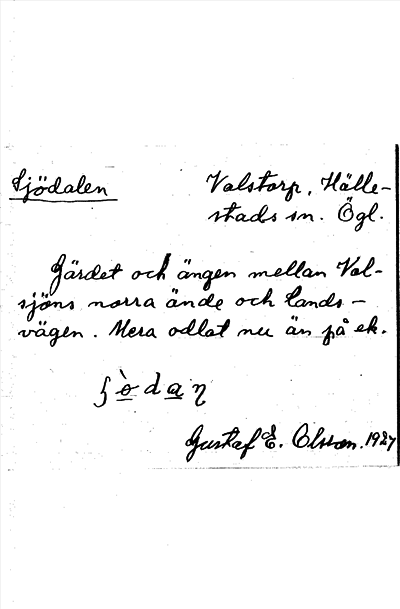 Sjödalen
Valstorp, Hälle-
stads sn. Ögl.
Gärdet och ängen mellan Val-
sjöns norra ände och lands-
vägen. Mera odlat nu än på ek.
Gustaf E. Olsson. 1927